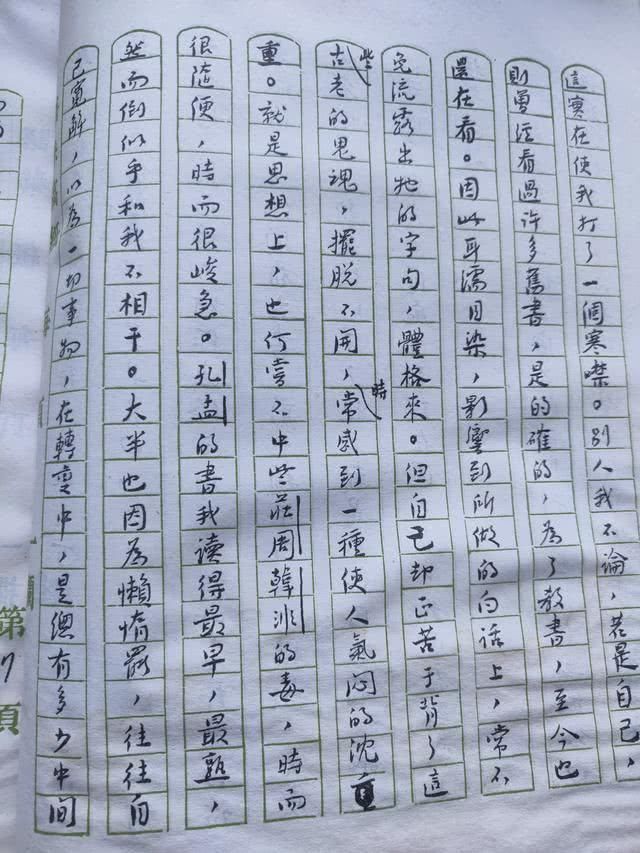 這實在使我打了一個寒噤。別人我不論，若是自己，
則曾經看過許多舊書，是的確的，為了教書，至今也
還在看。因此耳濡目染，影響到所做的白話上，常不
免流露出牠的字句，體格來。但自己却正苦于背了這
些古老的鬼魂，擺脫不開，時常感到一種使人氣闷的沈重
重。就是思想上，也何嘗不中些莊周韓非的毒，時而
很隨便，時而很峻急。孔孟的書我读得最早，最熟，
然而倒似乎和我不相干。大半也因為懶惰罷，往往自
己寬解，以為一切事物，在轉變中，是總有多少中间
第
7
頁